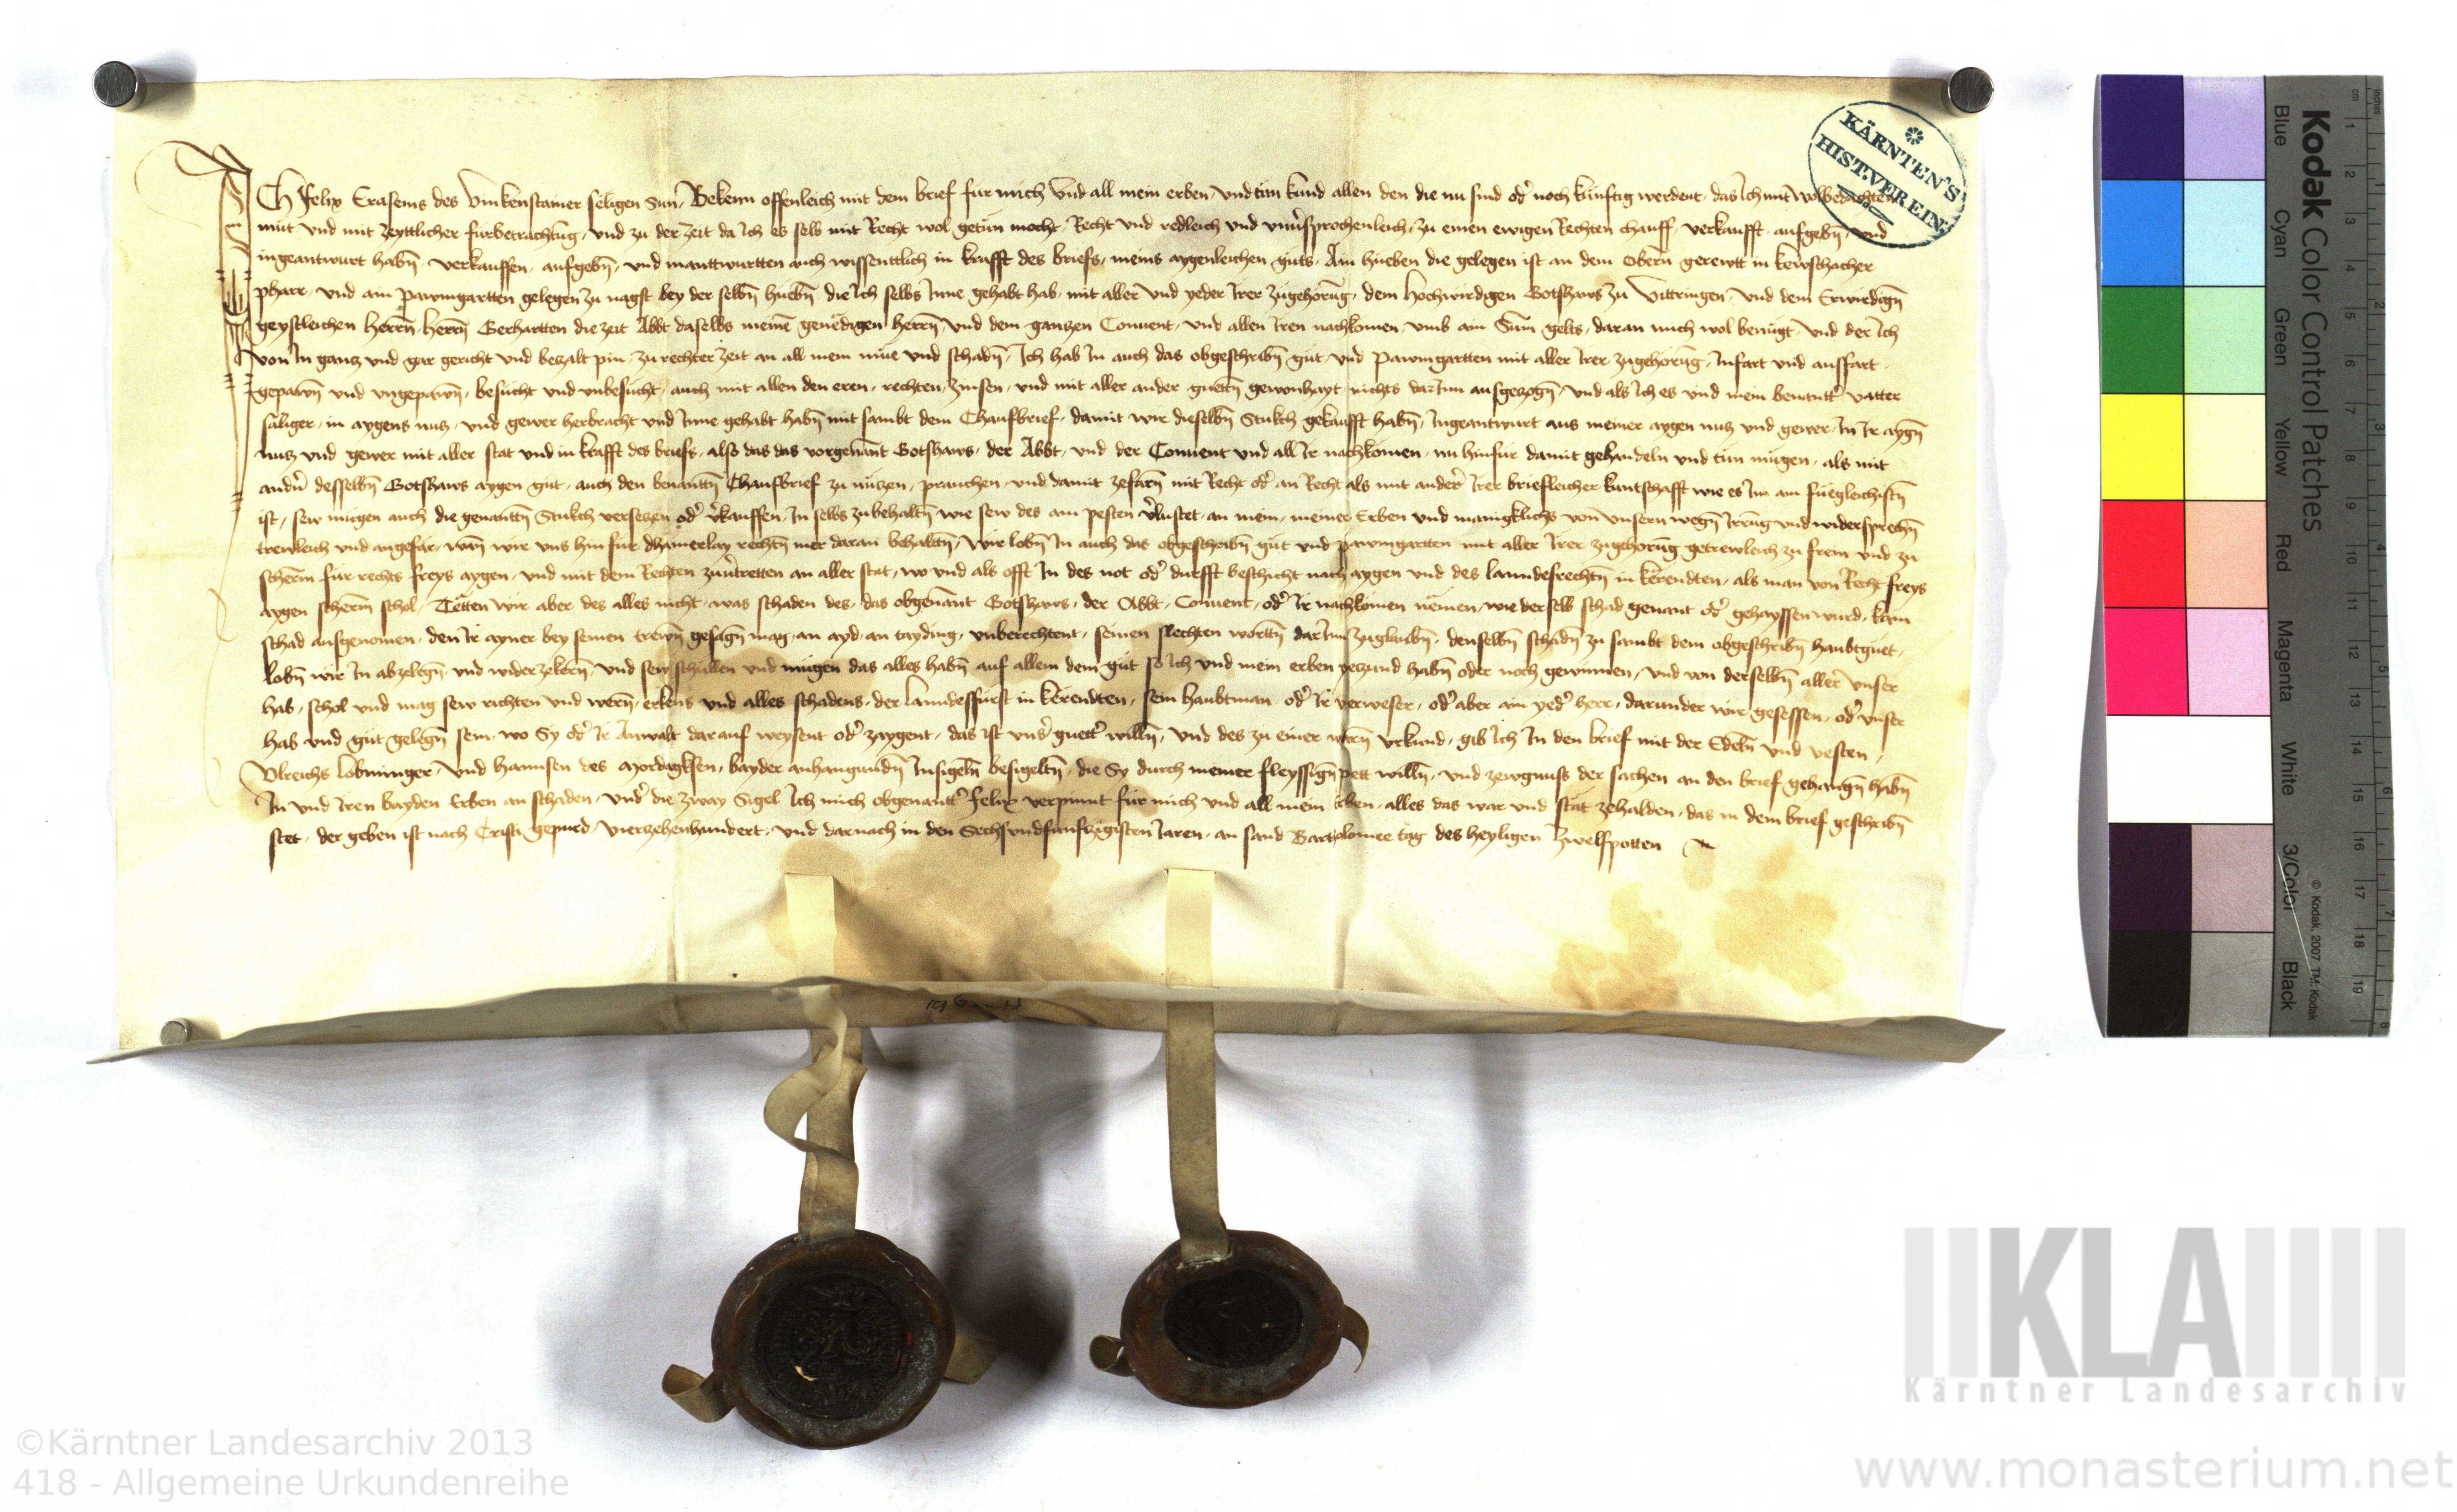 Ich Felix Erasems des Vinkenstainer seligen Sun, Bekenn offenleich mit dem brief fur mich und all mein erben, und tun kund allen den die nu sind od' noch kunftig werdent, das Ich mit wolbedachten
mut und mit zeyttlicher furbetrachtūg, und zu der zeit da Ich es selb mit Recht wol getun mocht, Recht und redleich und unv'sprochenleich, zu einen ewigen Rechten chauff, verkaufft, aufgebn̄, und
ingeantwurt habn̄, verkauffen, aufgebn̄, und inanttwurtten auch wissentlich in krafft des briefs, meins aygenleichen guts, Ain hueben die gelegen ist an dem Obern̄ gerewtt in kewtschacher
pharr, und ain pawmgartten gelegen zu nagst bey der selbn̄ huebn̄ die Ich selbs Inne gehabt hab, mit aller und yeder Irer zugehorūg, dem Hochwirdigen Gotshaws zu Vittringen, und dem Erwirdign̄
geystleichen herrn̄, herrn̄ Gerhartten die zeit Abbt daselbs meinē genedigen herrn̄ und dem ganzen Convent, und allen Iren nachkomen, umb ain Sum̄ gelts, daran mich wol benugt, und der Ich
von In ganz und gar gericht und bezalt pin, zu rechter zeit an all mein mue und schadn̄, Ich hab In auch das obgeschribn̄ gut, und pawmgartten mit aller Irer zugehorūg, Infart und ausfart,
gepawn̄ und ungepawn̄, besucht und unbesucht, auch mit allen den eren, rechten, zinsen, und mit aller ander guettn̄ gewonhayt nichts dar Inn ausgezogn̄, und als Ich es und mein benantt' vatter
saliger, in aygens nuz, und gewer herbracht und Inne gehabt habn̄ mit sambt dem Chaufbrief, damit wir dieselbn̄ Stukch gekaufft habn̄, Ingeantwurt aus meiner aygen nuz und gewer, In Ir aygn̄
nuz und gewer mit aller stat und in krafft des briefs, also das das vorgenant Gotshaws, der Abbt, und der Convent und all Ir nachkomen, nu hinfur damit gehandeln und tun mugen, als mit
andn̄ desselbn̄ Gotshaws aygen gut, auch den benanttn̄ Chaufbrief zu nuzen, prauchen, und damit zefarn̄ mit Recht od' an Recht als mit ander' Irer briefleicher kuntschafft wie es Im am fuegleichistn̄
ist, sew mugen auch die genanttn̄ Stukch versezen od' v'kauffen, In selbs zu behaltn̄ wie sew des am pesten v'lustet, an mein, meiner Erben und manigklichs von unsern wegn̄ Irrūg und widersprechn̄
trewleich und angefar, wan̄ wir uns hin fur dhainerlay rechtn̄ mer daran behaltn̄, Wir lobn̄ In auch das obgeschribn̄ gut und pawmgartten mit aller Irer zugehorūg getrewleich zu frein und zu
scherm̄ fur rechts freys aygen, und mit dem Rechten zuv'tretten an aller stat, wo und als offt In des not od' durfft beschicht nach aygen und des lanndesrechtn̄ in kerendten, als man von Recht freys
aygen scherm̄ schol, Tetten wir aber des alles nicht, was schaden des, das obgenant Gotshaws, der Abbt, Convent, od' Ir nachkomen nemen, wie derselb schad genant od' gehayssen wurd, kain
schad ausgenomen, den Ir ayner bey seinen trewn̄ gesagn̄ mag, an ayd, an tayding, unberechtent, seinen slechten worttn̄ dar Inn zuglaubn̄, denselbn̄ schadn̄ zu sambt dem obgeschribn̄ haubtguet,
lobn̄ wir In abzelegn̄, und widerzekern̄, und sew schullen und mugen das alles habn̄ auf allem dem gut so Ich und mein erben yezund habn̄ oder noch gewinnen, und von derselbn̄ aller unser
hab, schol und mag sew richten und wern̄, erkens und alles schadens, der lanndesfurst in kerendten, sein haubtman od' Ir verweser, od' aber ain yed' herr, darunder wir gesessen, od' unser
hab und gut gelegn̄ sein, wo Sy od' Ir Anwalt darauf weysent od' zaygent, das ist uns' guett' willn̄, und des zu einer warn̄ Urkund, gib Ich In den brief mit der Edeln̄ und vesten,
Ulreichs Lobminger, und Hannsen des Mordagksen, bayder anhangundn̄ Insigeln̄ besigeltn̄, die Sy durch meiner fleyssign̄ pett willn̄, und zewgnuss der sachen an den brief gehangn̄ habn̄
In und Iren bayden Erben an schaden, und' die zway Sigel Ich mich obgenantt' Felix verpinnt fur mich und all mein erben, alles das war und stat zehalden, das in dem brief geschribn̄
stet, der geben ist nach Cristi gepurd, vierzehenhundert, und darnach in den Sechsundfunfzigisten Jaren, an sand Bartholomee tag des heyligen Zwelfpotten
KÄRNTEN'S
HIST.VEREIN.
Kodak Color Control Patches
Blue Cyan Green Yellow Red Magenta White 3/Color Black
© Kodak, 2007 TM: Kodak
cm 1 2 3 4 5 6 7 8 9 10 11 12 13 14 15 16 17 18 19
inches 1 2 3 4 5 6 7 8
KLA
Kärntner Landesarchiv
©Kärntner Landesarchiv 2013
418 - Allgemeine Urkundenreihe
www.monasterium.net